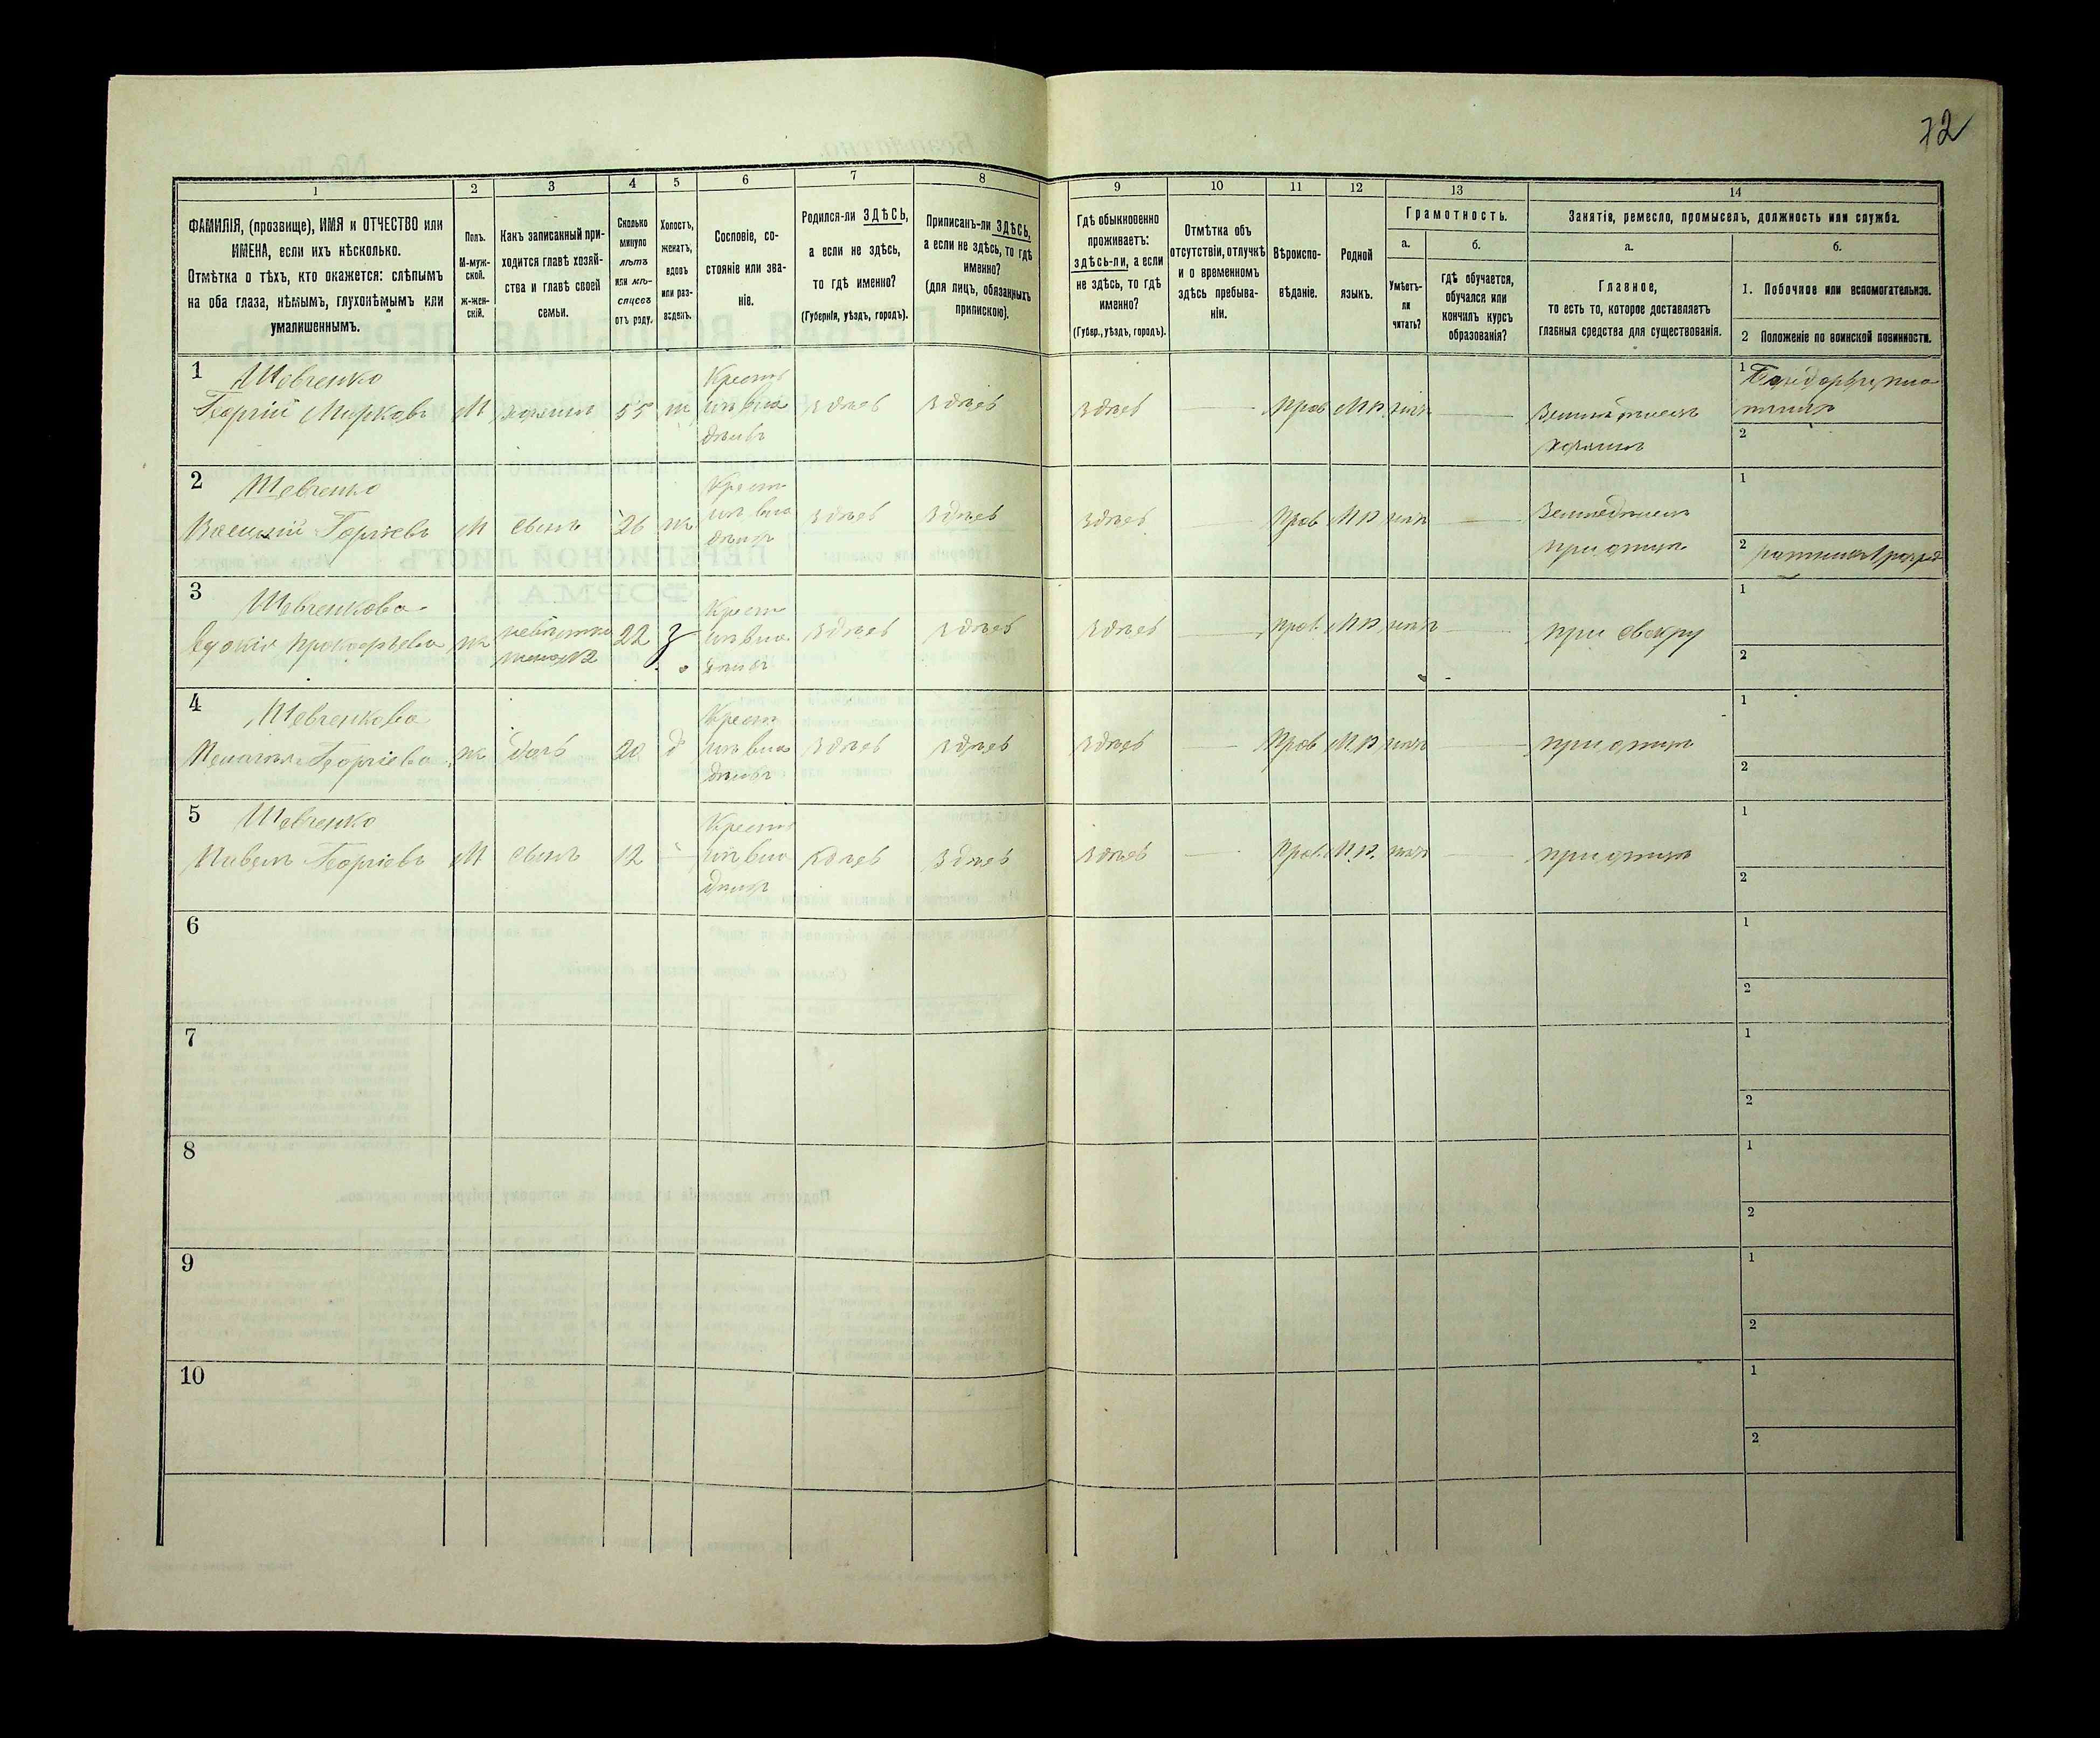 72
1 2 3 4 5 6 7 8 9 10 11 12 13 14
ФАМИЛІЯ, (прозвище), ИМЯ и ОТЧЕСТВО или
ИМЕНА, если ихъ нѣсколько.
Отмѣтка о тѣхъ, кто окажется: слѣпымъ
на оба глаза, нѣмымъ, глухонѣмымъ или
умалишеннымъ.
Полъ.
М-муж-
ской.
ж-жен-
скій.
Какъ записанный при-
ходится главѣ хозяй-
ства и главѣ своей
семьи.
Сколько
минуло
лѣтъ
или мѣ-
сяцевъ
отъ роду.
Холостъ,
женатъ,
вдовъ
или раз-
веденъ.
Сословіе, со-
стояніе или зва-
ніе.
Родился-ли ЗДѢСЬ,
а если не здѣсь,
то гдѣ именно?
(Губернія, уѣздъ, городъ).
Приписанъ-ли ЗДѢСЬ,
а если не здѣсь, то гдѣ
именно?
(для лицъ, обязанныхъ
припискою).
Гдѣ обыкновенно
проживаетъ:
здѣсь-ли, а если
не здѣсь, то гдѣ
именно?
(Губер., уѣздъ, городъ).
Отмѣтка объ
отсутствіи, отлучкѣ
и о временномъ
здѣсь пребыва-
ніи.
Вѣроиспо-
вѣданіе.
Родной
языкъ.
Грамотность.
а.
Умѣетъ-
ли
читать?
б.
гдѣ обучается,
обучался или
кончилъ курсъ
образованія?
Занятія, ремесло, промыселъ, должность или служба.
а.
Главное,
то есть то, которое доставляетъ
главныя средства для существованія.
б.
1. Побочное или вспомогательное.
2 Положеніе по воинской повинности.
1 Шевченко
Георгій Марковъ М хозяинъ 55 ж Крестья
нинъ вла
дѣлецъ здѣсь здѣсь здѣсь — Прав М.р. нѣтъ — Земледѣлецъ
хозяинъ
1
2
2 Шевченко
Василій Георгіевъ М сынъ 26 ж здѣсь здѣсь здѣсь — Прав М.р. нѣтъ — Земледѣлецъ
при отцѣ
1
2
3 Шевченкова
Евдокія Прокофьева ж невѣстка
жена №2 22 з здѣсь здѣсь здѣсь — Прав. М.р. нѣтъ — при свекру
1
2
4 Шевченкова
Пелагея Георгіева ж дочь 20 д здѣсь здѣсь здѣсь — Прав М.р. нѣтъ — при отцѣ
1
2
5 Шевченко
Павелъ Георгіевъ М сынъ 12 — здѣсь здѣсь здѣсь — Прав. М.р. нѣтъ — при отцѣ
1
2
6
1
2
7
1
2
8
1
2
9
1
2
10
1
2